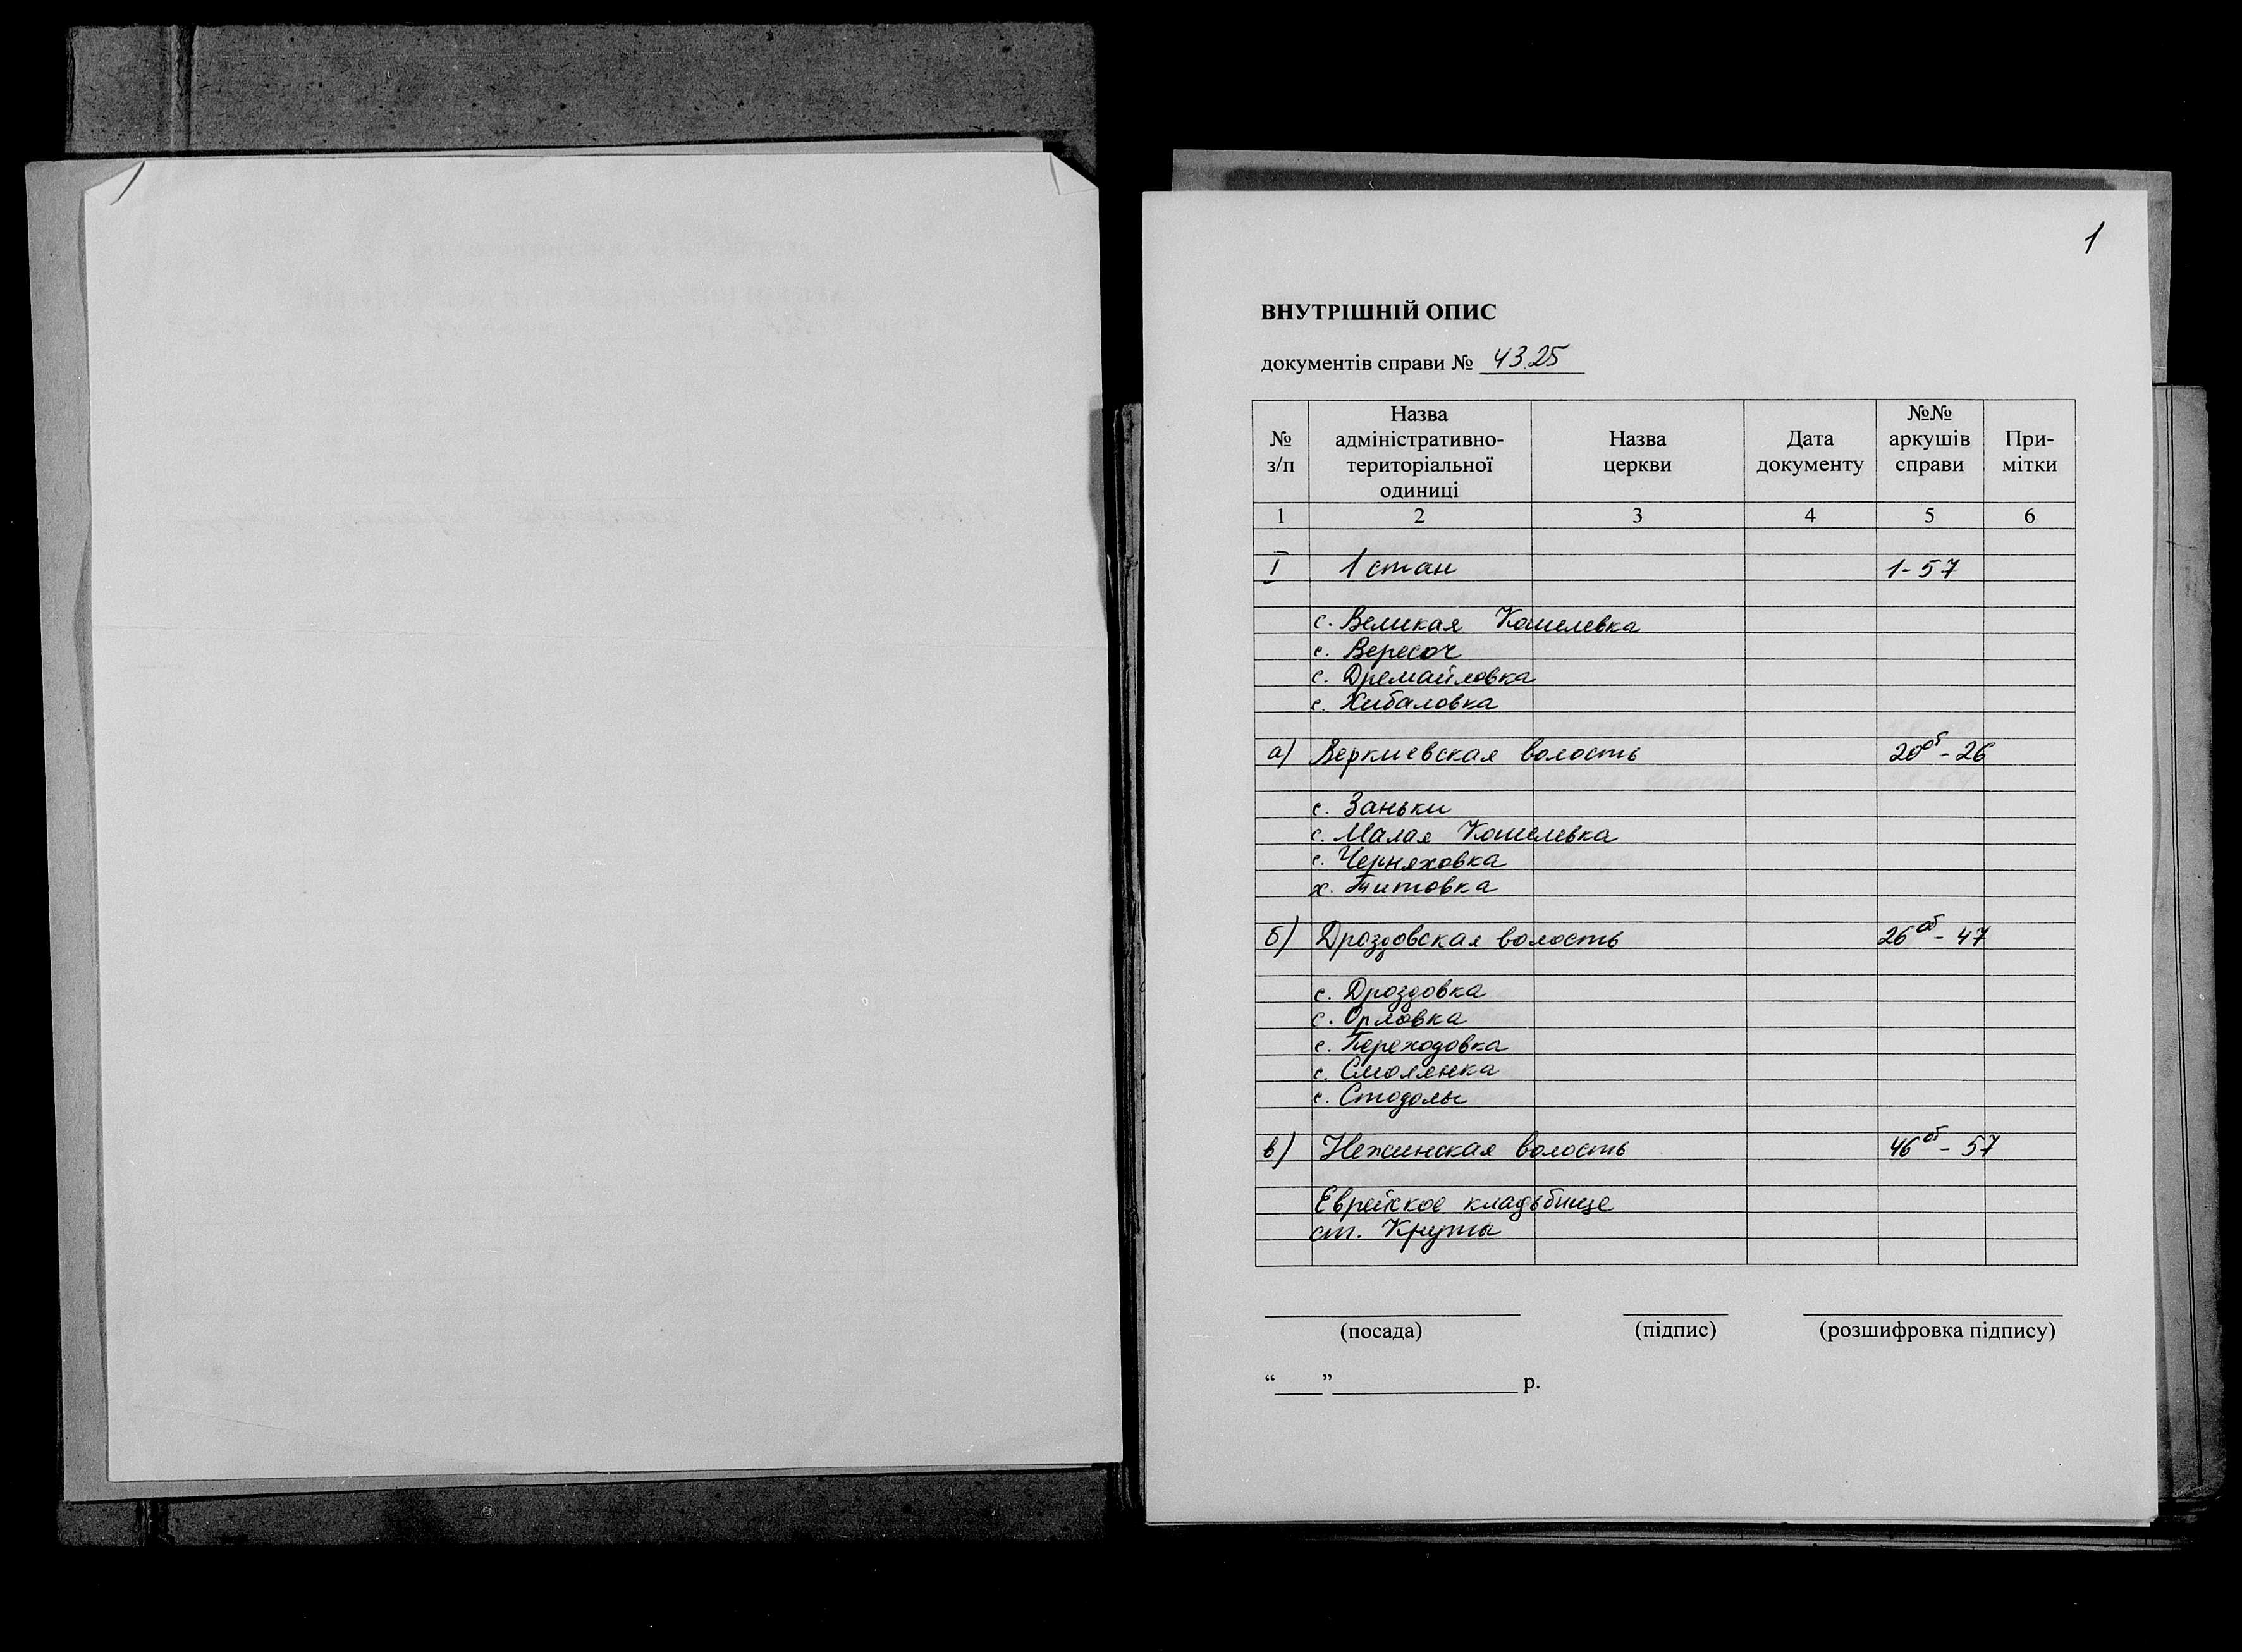 1
ВНУТРІШНІЙ ОПИС
документів справи № 4325
№ з/п | Назва адміністративно-територіальної одиниці | Назва церкви | Дата документу | №№ аркушів справи | При-мітки
1 | 2 | 3 | 4 | 5 | 6
I 1 стан 1-57
с. Великая Кошелевка
с. Вересоч
с. Дремайловка
с. Хибаловка
а) Веркиевская волость 20об - 26
с. Заньки
с. Малая Кошелевка
с. Черняховка
х. Титовка
б) Дроздовская волость 26об - 47
с. Дроздовка
с. Орловка
с. Переходовка
с. Смолянка
с. Стодолы
в) Нежинская волость 46об - 57
Еврейское кладьбище
ст. Круты
(посада) (підпис) (розшифровка підпису)
“___”_______________ р.